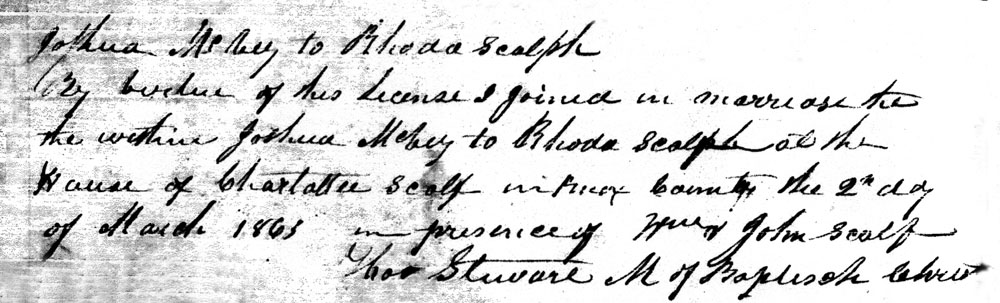 Joshua McVey to Rhoda Scalph
By virtue of this license I joined in marriage the
the within Joshua McVey to Rhoda Scalph at the
House of Charlottee Scalf in Knox County the 2n day
of March 1865 in presence of Wm & John Scalf
Thos Stuvart M of Baptisch